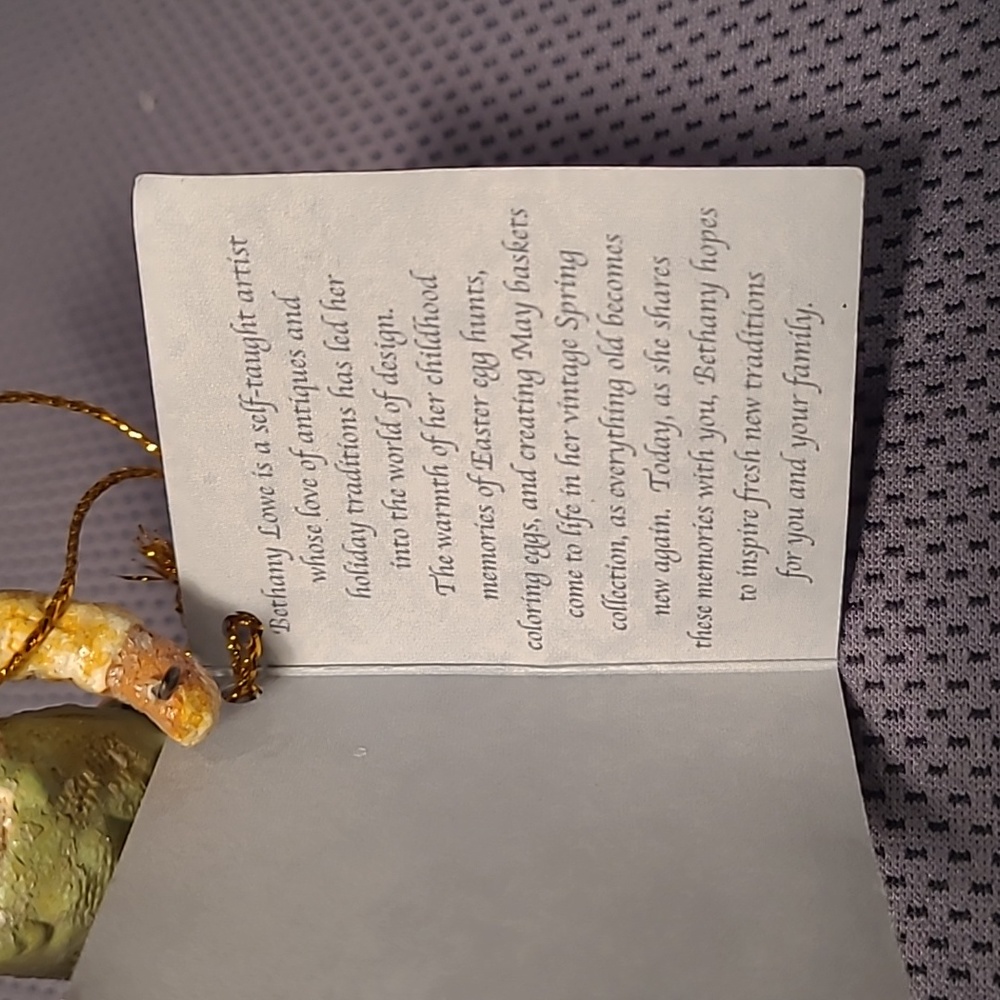 Bethany Lowe is a self-taught artist
whose love of antiques and
holiday traditions has led her
into the world of design.
The warmth of her childhood
memories of Easter egg hunts,
coloring eggs, and creating May baskets
come to life in her vintage Spring
collection, as everything old becomes
new again. Today, as she shares
these memories with you, Bethany hopes
to inspire fresh new traditions
for you and your family.